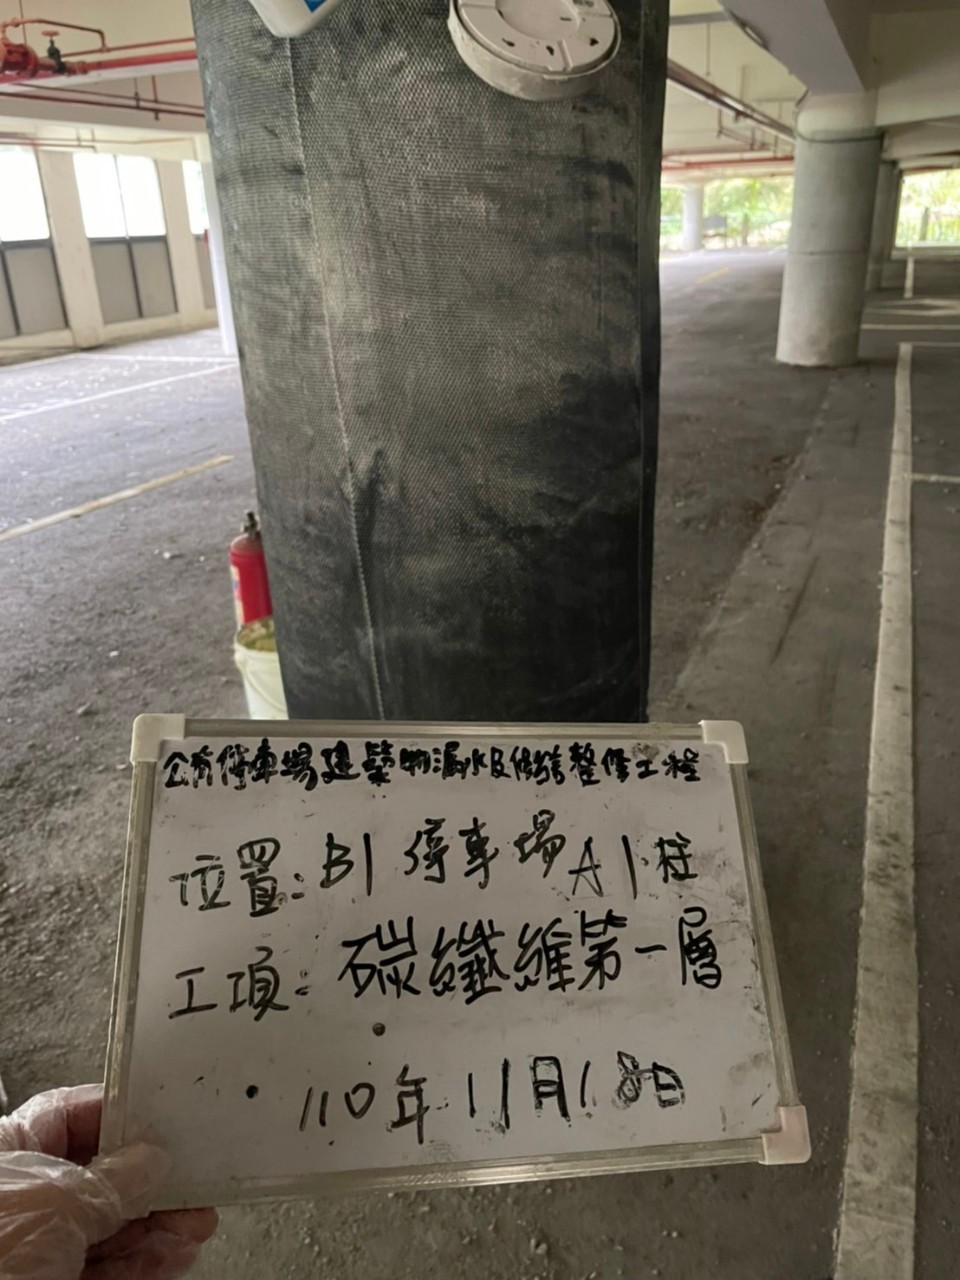 公有停車場建築物漏水及修繕整修工程
位置：B1停車場A1柱
工項：碳纖維第一層
110年11月18日